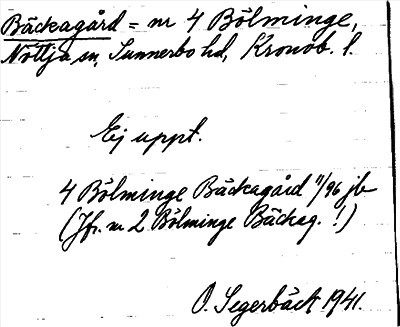 Bäckagård = nr 4 Bölminge,
Nöttja sn, Sunnerbo hd, Kronob. l.
Ej uppt.
4 Bölminge Bäckagård 11/96 jb
(Jfr. nr 2 Bölminge Bäckag. !)
O. Segerbäck 1941.